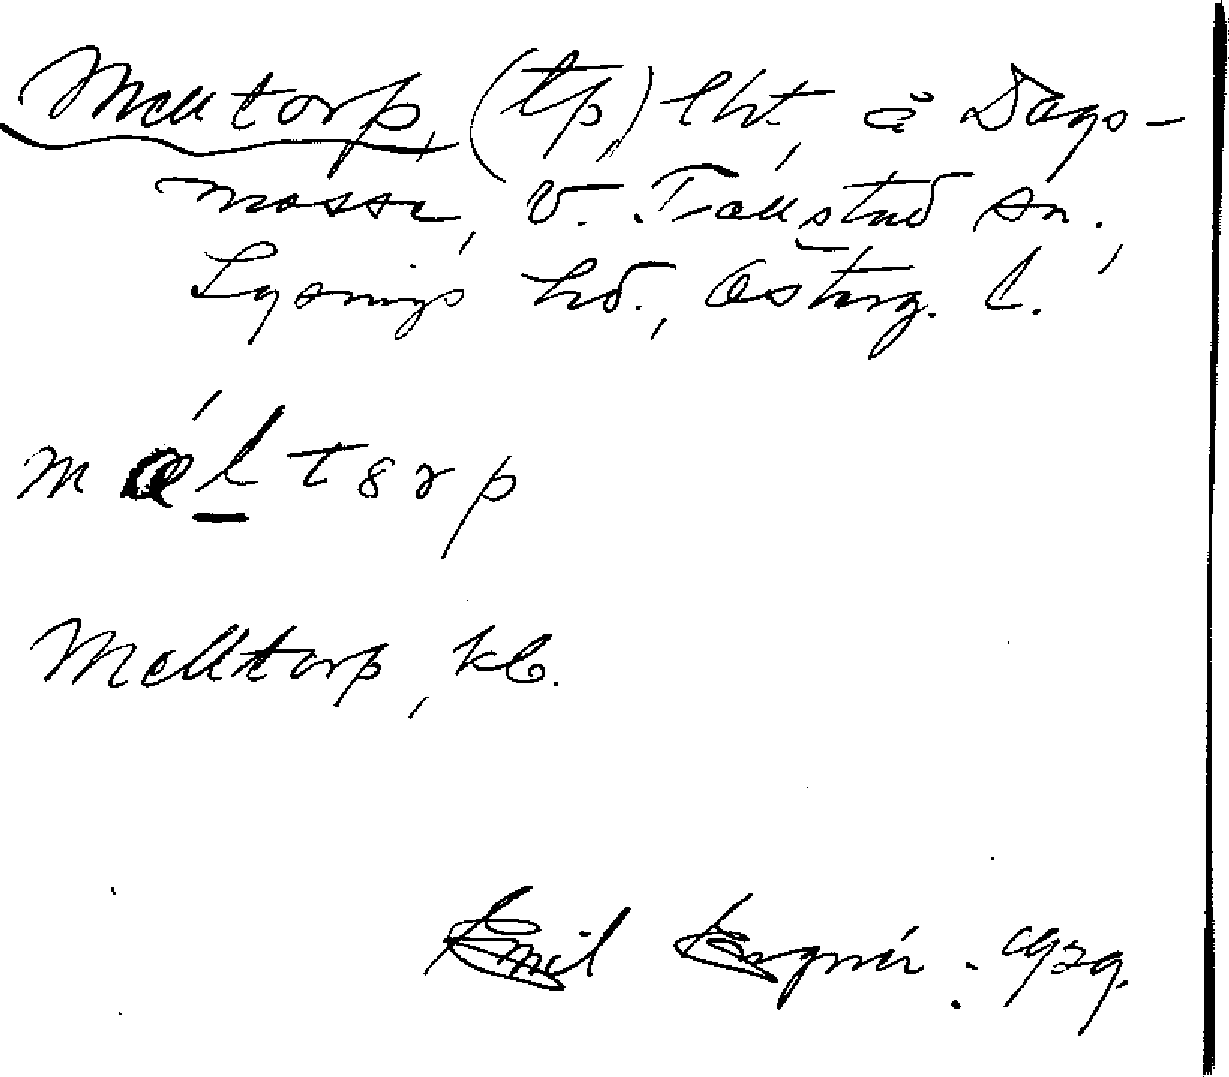 Melltorp, (tp) lht, å Dags-
mosse, V. Tollstad sn.,
Lysings hd., Österg. l.
mǽltorp
Melltorp, kb.
Emil 1929.